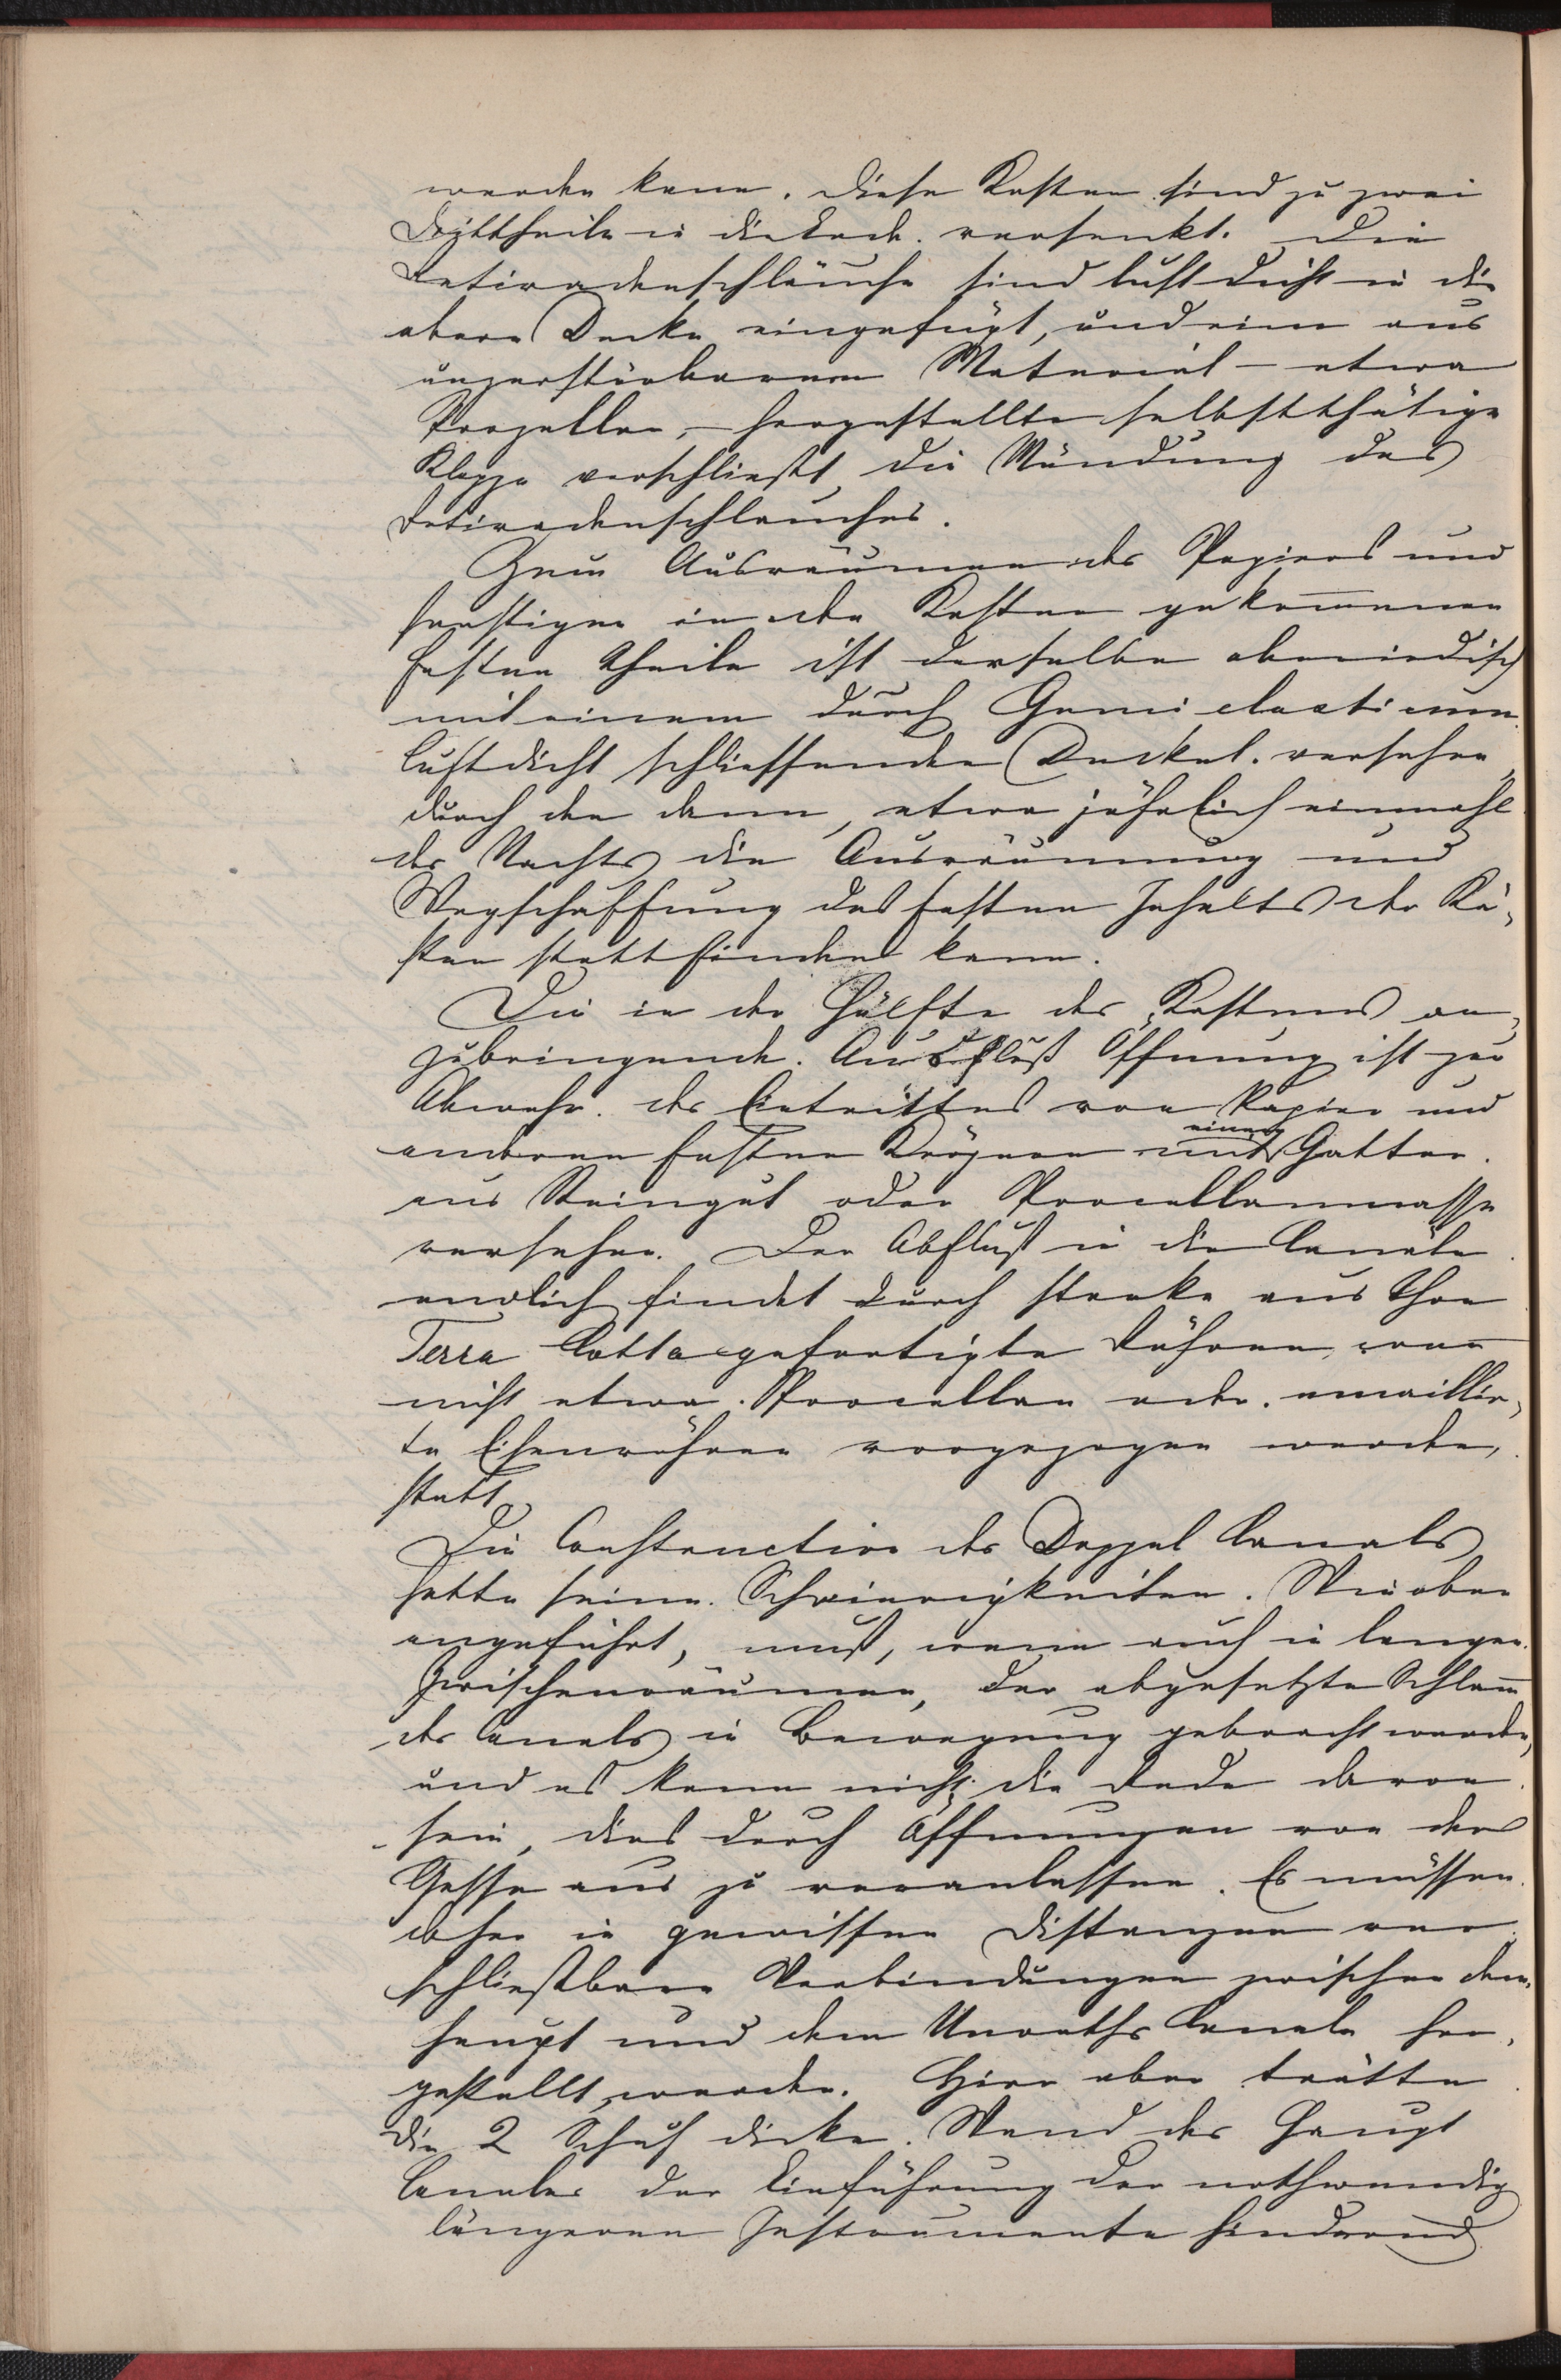 werden kann. Diese Kasten sind zu zwei
Drittheile in die Erde versenkt. Die
Retiradenschläuche sind luftdicht in die
obere Decke eingefügt, und eine aus
unzerstörbarem Material – etwa
Porzellan, – hergestellte selbstthätige
Klappe verschließt die Mündung des
Retiradenschlauches.
Zum Ausräumen des Papiers und
sonstigen in den Kasten gekommenen
festen Theile ist derselbe oberirdisch
mit einem durch Gumi elasticum
luftdicht schliessenden Deckel versehen,
durch den dann, etwa jährlich einmahl
des Nachts die Ausräumung und
Wegschaffung des festen Inhalts der Kä-
sten stattfinden kann.
Die in der Hälfte des Kastens an-
zubringende Ausfluß Öffnung ist zur
Abwehr des Eintrittes von Papier und
anderen festen Körpern mit einem Gatter
aus Steingut oder Porcellanmasse
versehen. Der Abfluß in die Canäle
endlich findet durch starke aus Thon
Terra Cotta gefertigte Röhren, wenn
nicht etwa Porcellan oder emaillir-
te Eisenröhren vorgezogen werden,
statt.
Die Construction des Doppel Canals
hatte seine Schwierigkeiten. Wie oben
angeführt, muß, wenn auch in langen
Zwischenräumen, der abgesetzte Schlam̄
des Canals in Bewegung gebracht werden,
und es kann nicht die Rede davon
sein, dies durch Öffnungen von der
Gasse aus zu veranlassen. Es müssen
daher in gewissen Distanzen ver-
schließbare Verbindungen zwischen dem
Haupt und dem Unraths Canale her-
gestellt werden. Hier aber trätte
die 2 Schuh dicke Wand des Haupt
Canales der Einführung der nothwendig
längeren Instrumente hindernd